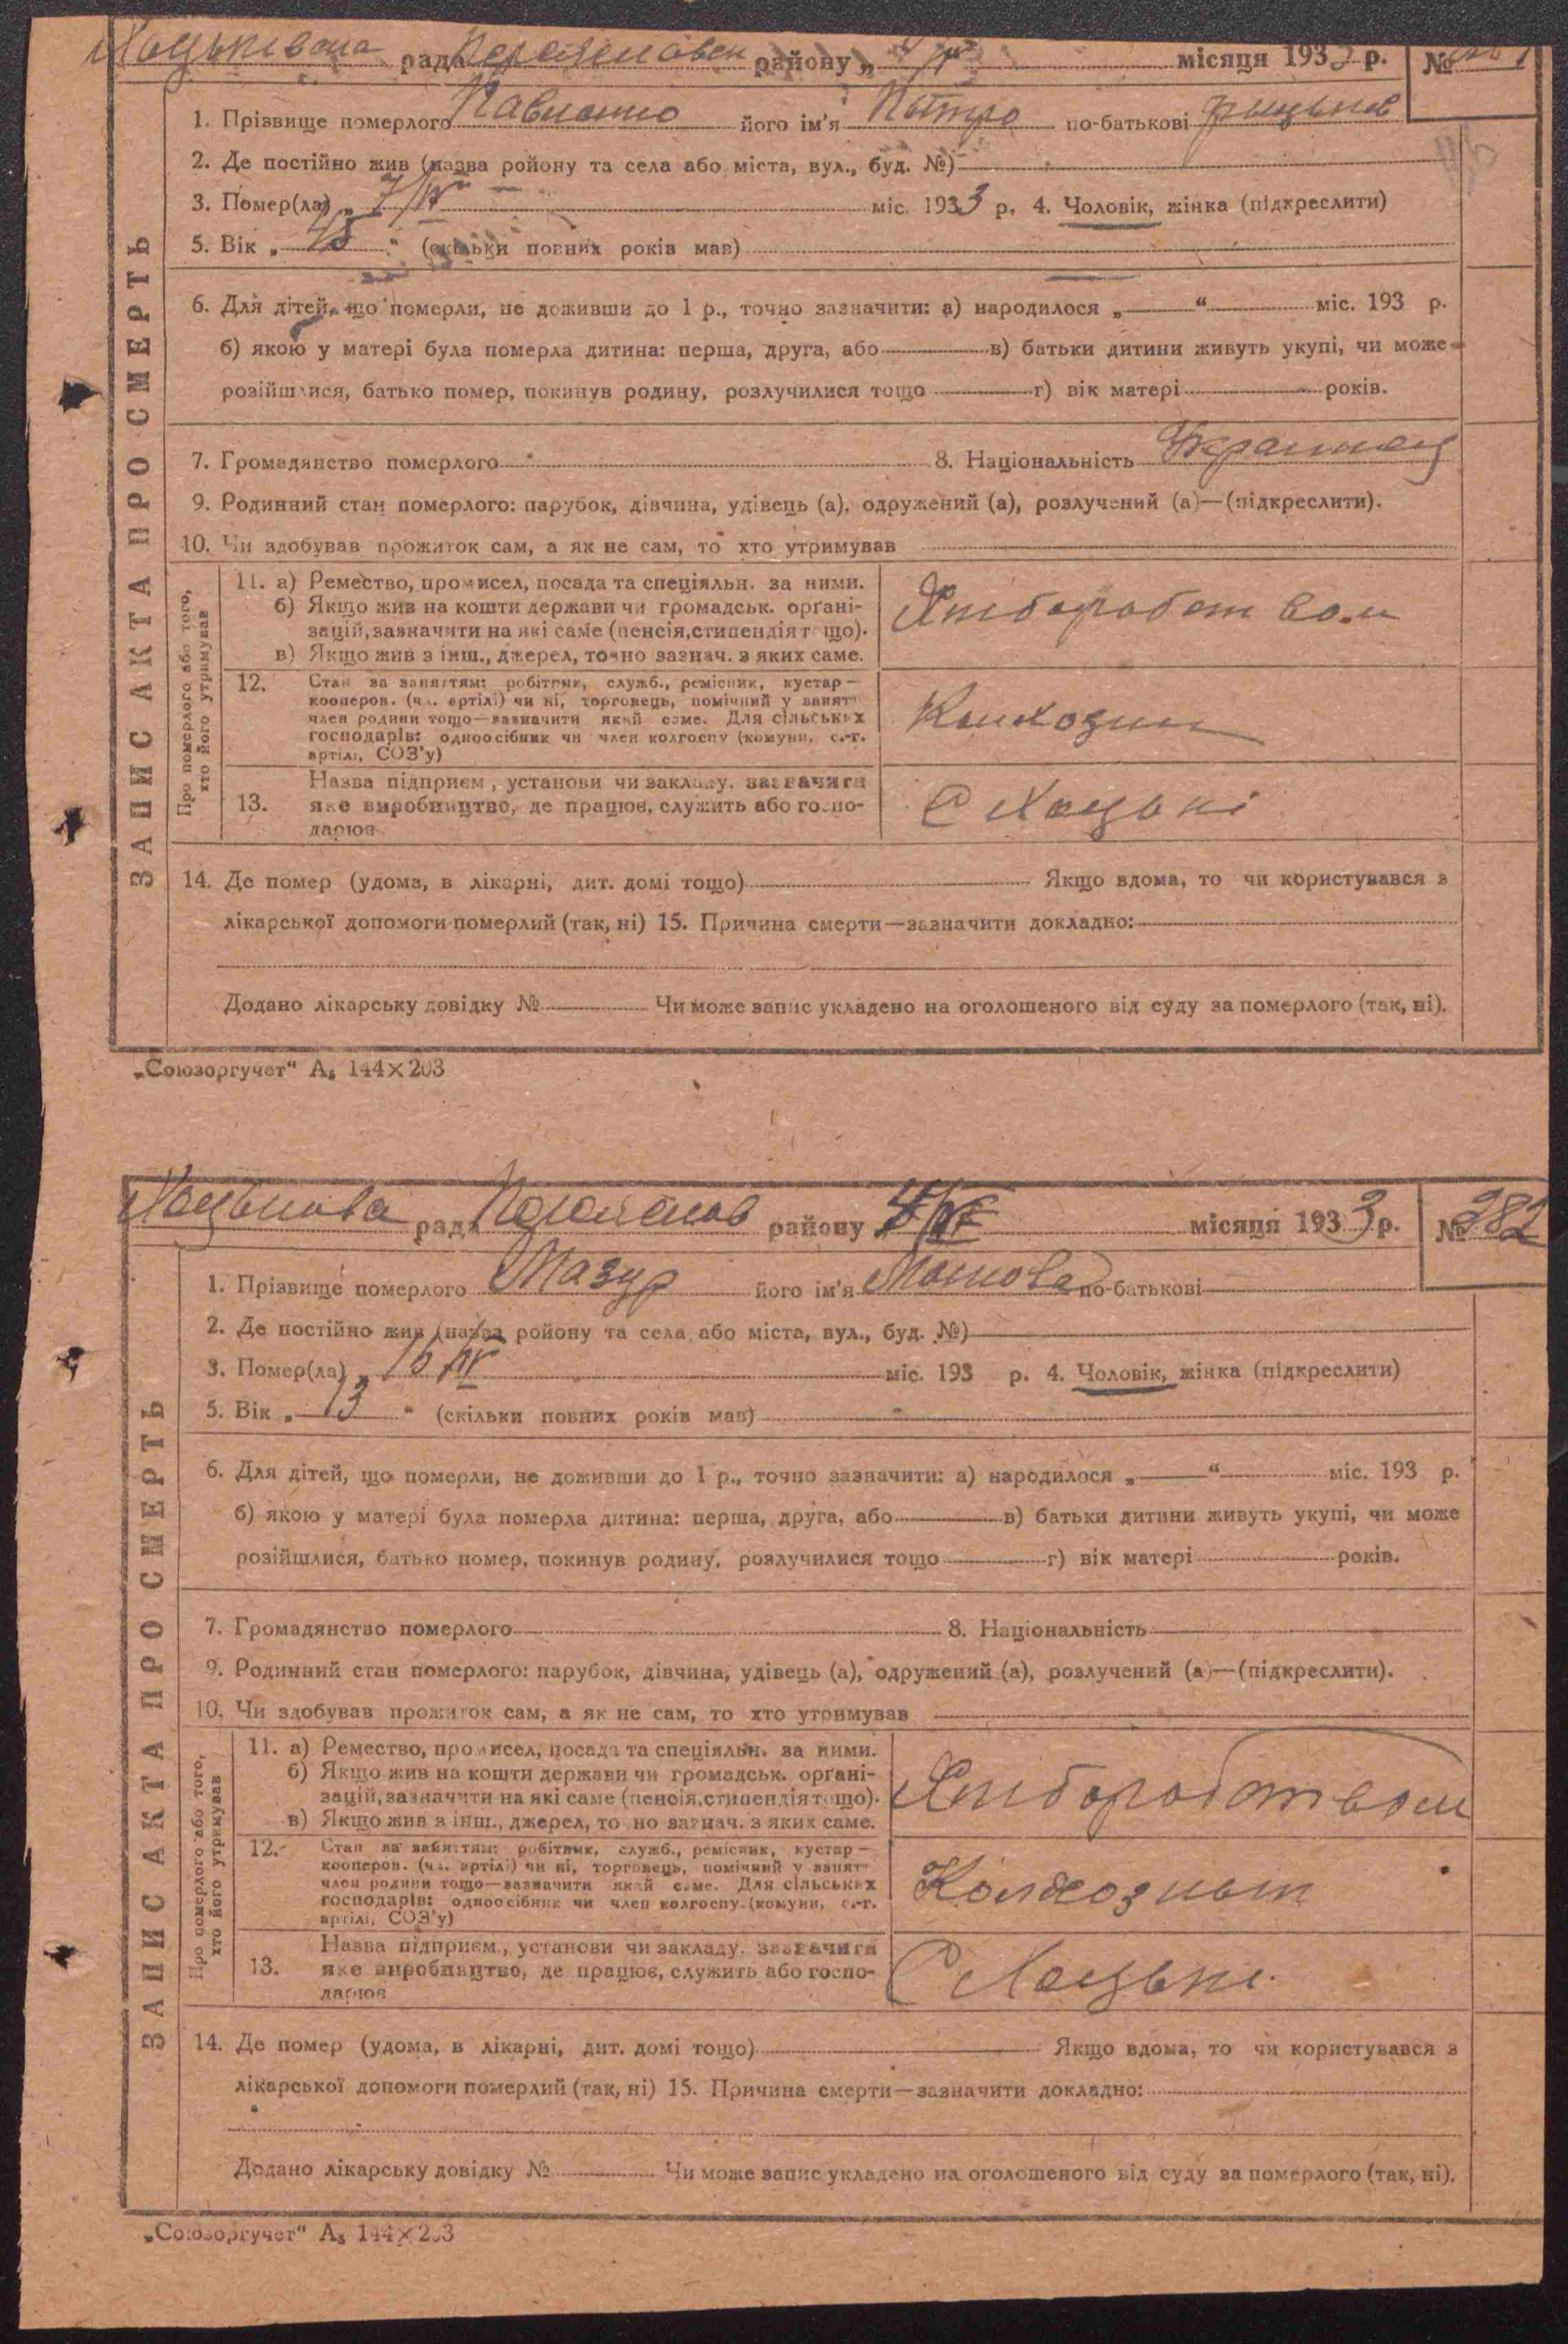 Хоцьківська рада Переяславськ району „ місяця 1933 р. №
1. Прізвище померлого Павленко його ім'я Петро по-батькові
2. Де постійно жив (назва ройону та села або міста, вул., буд. №)
3. Помер(ла) „ 7/IV міс. 1933 р. 4. Чоловік, жінка (підкреслити)
5. Вік „ 45 “ (скільки повних років мав)
6. Для дітей, що померли, не доживши до 1 р., точно зазначити: а) народилося „ “ міс. 193 р.
б) якою у матері була померла дитина: перша, друга, або в) батьки дитини живуть укупі, чи може
розійшлися, батько помер, покинув родину, розлучилися тощо г) вік матері років.
7. Громадянство померлого 8. Національність Украинец
9. Родинний стан померлого: парубок, дівчина, удівець (а), одружений (а), розлучений (а)—(підкреслити).
10. Чи здобував прожиток сам, а як не сам, то хто утримував
ЗАПИС АКТА ПРО СМЕРТЬ
Про померлого або того,
хто його утримував
11. а) Ремество, промисел, посада та спеціяльн. за ними.
б) Якщо жив на кошти держави чи громадськ. орґані-
зацій, зазначити на які саме (пенсія, стипендія тощо).
в) Якщо жив з інш., джерел, точно зазнач. з яких саме.
Хлиборобством
12. Стан за заняттям: робітник, служб., ремісник, кустар—
кооперов. (чл. артілі) чи ні, торговець, помічний у занятт
член родини тощо—зазначити який саме. Для сільських
господарів: одноосібник чи член колгоспу (комуни, с.-г.
артілі, СОЗ'у)
Колхозник
13. Назва підприєм., установи чи закладу, зазначити
яке виробництво, де працює, служить або госпо-
дарює
С Хоцькі
14. Де помер (удома, в лікарні, дит. домі тощо) Якщо вдома, то чи користувався з
лікарської допомоги померлий (так, ні) 15. Причина смерти—зазначити докладно:
Додано лікарську довідку № Чи може запис укладено на оголошеного від суду за померлого (так, ні).
„Союзоргучет“ А₅ 144×203
Хоцькова рада Переяслав району місяця 1933 р. № 282
1. Прізвище померлого Мазур його ім'я по-батькові
2. Де постійно жив (назва ройону та села або міста, вул., буд. №)
3. Помер(ла) „ 16/IV міс. 193 р. 4. Чоловік, жінка (підкреслити)
5. Вік „ 13 “ (скільки повних років мав)
6. Для дітей, що померли, не доживши до 1 р., точно зазначити: а) народилося „ “ міс. 193 р.
б) якою у матері була померла дитина: перша, друга, або в) батьки дитини живуть укупі, чи може
розійшлися, батько помер, покинув родину, розлучилися тощо г) вік матері років.
7. Громадянство померлого 8. Національність
9. Родинний стан померлого: парубок, дівчина, удівець (а), одружений (а), розлучений (а)—(підкреслити).
10. Чи здобував прожиток сам, а як не сам, то хто утримував
ЗАПИС АКТА ПРО СМЕРТЬ
Про померлого або того,
хто його утримував
11. а) Ремество, промисел, посада та спеціяльн. за ними.
б) Якщо жив на кошти держави чи громадськ. орґані-
зацій, зазначити на які саме (пенсія, стипендія тощо).
в) Якщо жив з інш., джерел, точно зазнач. з яких саме.
Хлиборобством
12. Стан за заняттям: робітник, служб., ремісник, кустар—
кооперов. (чл. артілі) чи ні, торговець, помічний у занятт
член родини тощо—зазначити який саме. Для сільських
господарів: одноосібник чи член колгоспу (комуни, с.-г.
артілі, СОЗ'у)
Колхозным
13. Назва підприєм., установи чи закладу, зазначити
яке виробництво, де працює, служить або госпо-
дарює
С Хоцьки
14. Де помер (удома, в лікарні, дит. домі тощо) Якщо вдома, то чи користувався з
лікарської допомоги померлий (так, ні) 15. Причина смерти—зазначити докладно:
Додано лікарську довідку № Чи може запис укладено на оголошеного від суду за померлого (так, ні).
„Союзоргучет“ А₅ 144×203